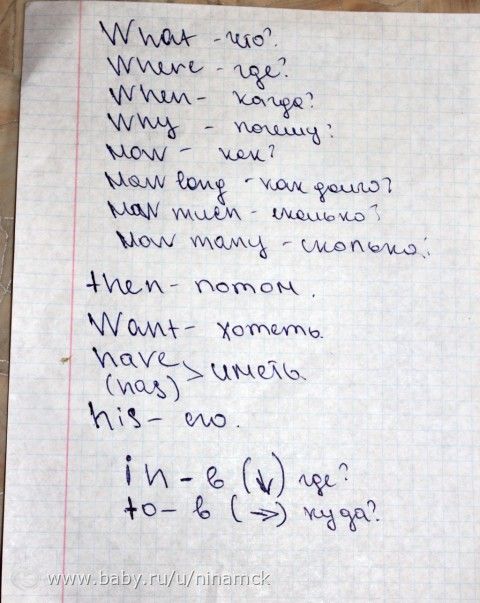 What - что?
Where - где?
When - когда?
Why - почему?
How - как?
How long - как долго?
How much - сколько?
How many - сколько?
then - потом.
Want - хотеть
have
(has) > иметь
his - его.
in - в (↓) где?
to - в (→) куда?
www.baby.ru/u/ninamck